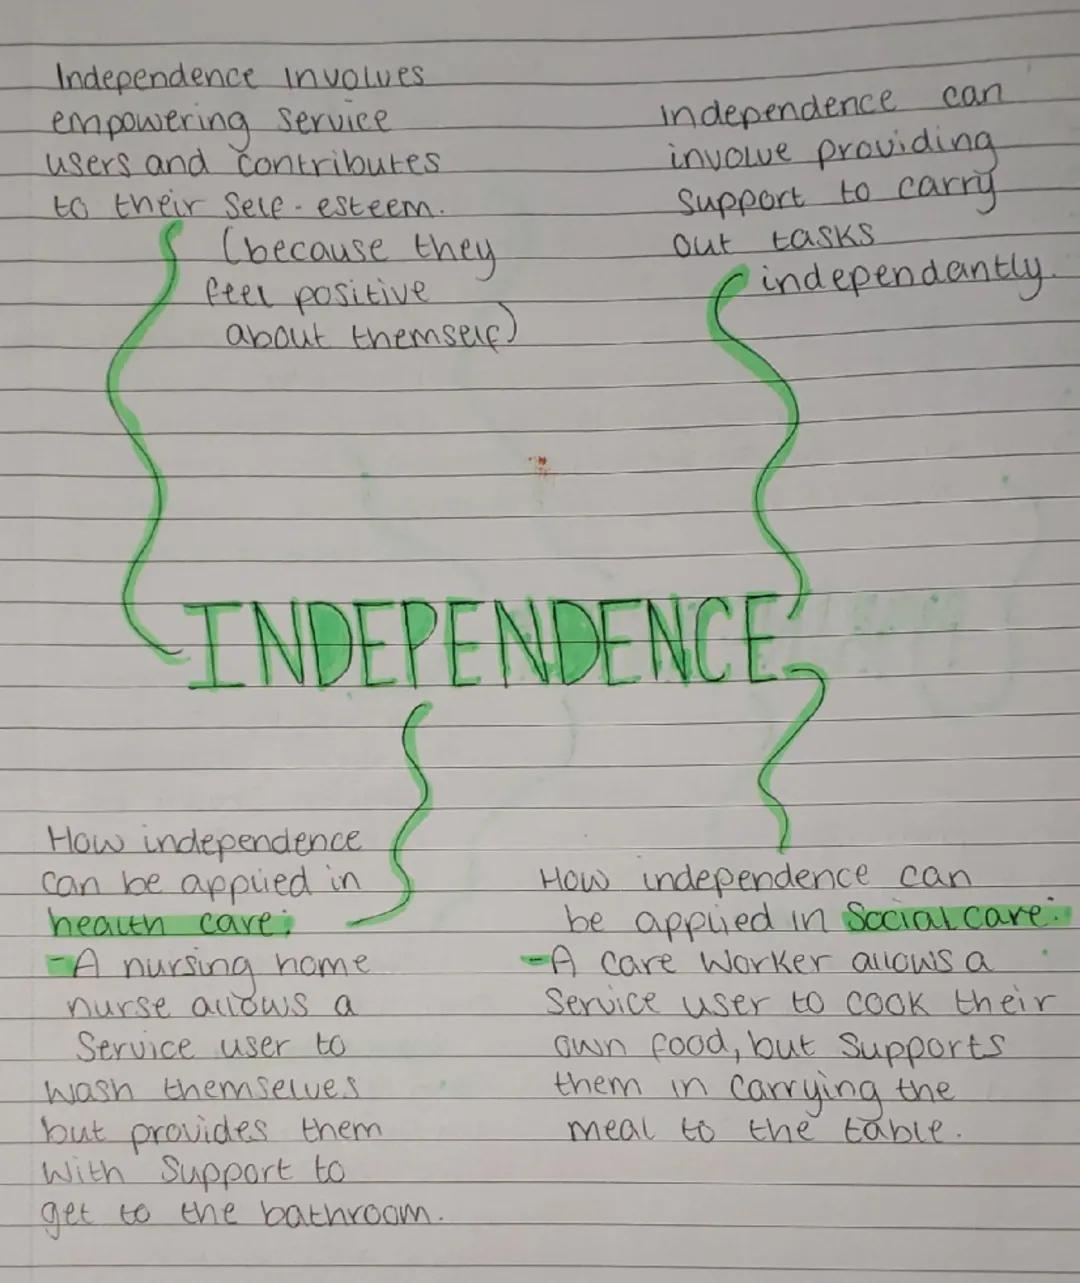 Independence involves
empowering service
users and contributes
to their self-esteem.
(because they
feel positive
about themself)
independence can
involve providing
support to carry
out tasks
independantly.
INDEPENDENCE
How independence
can be applied in
health care:
-A nursing home
nurse allows a
service user to
wash themselves
but provides them
with support to
get to the bathroom.
How independence can
be applied in Social care:
-A care worker allows a
service user to cook their
own food, but supports
them in carrying the
meal to the table.